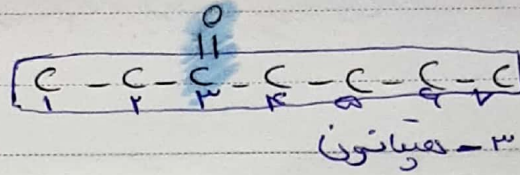 O
||
C - C - C - C - C - C - C
۱ ۲ ۳ ۴ ۵ ۶ ۷
۳ - هپتانون